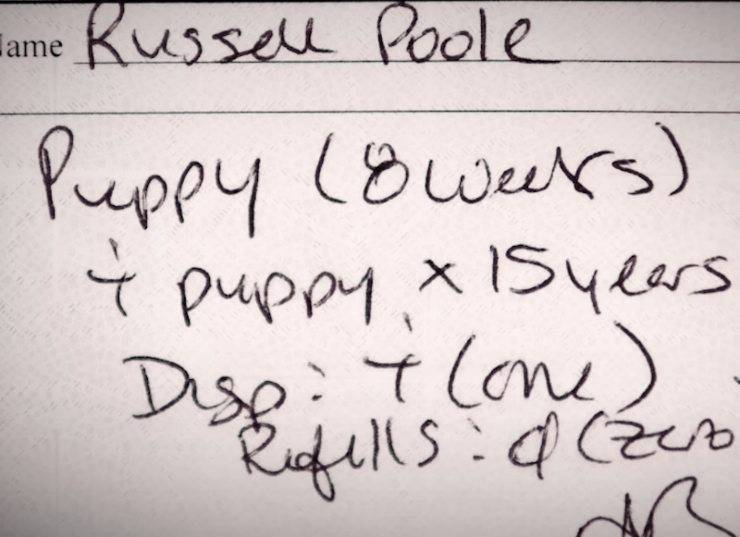 Name Russell Poole
Puppy (8 weeks)
i puppy x 15 years
Disp: i (one)
Refills: ϕ (zero